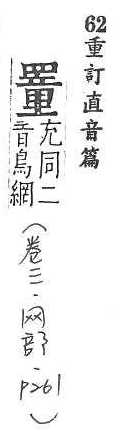 62重訂直音篇
充同二
音鳥網
（卷三．网部．P261）